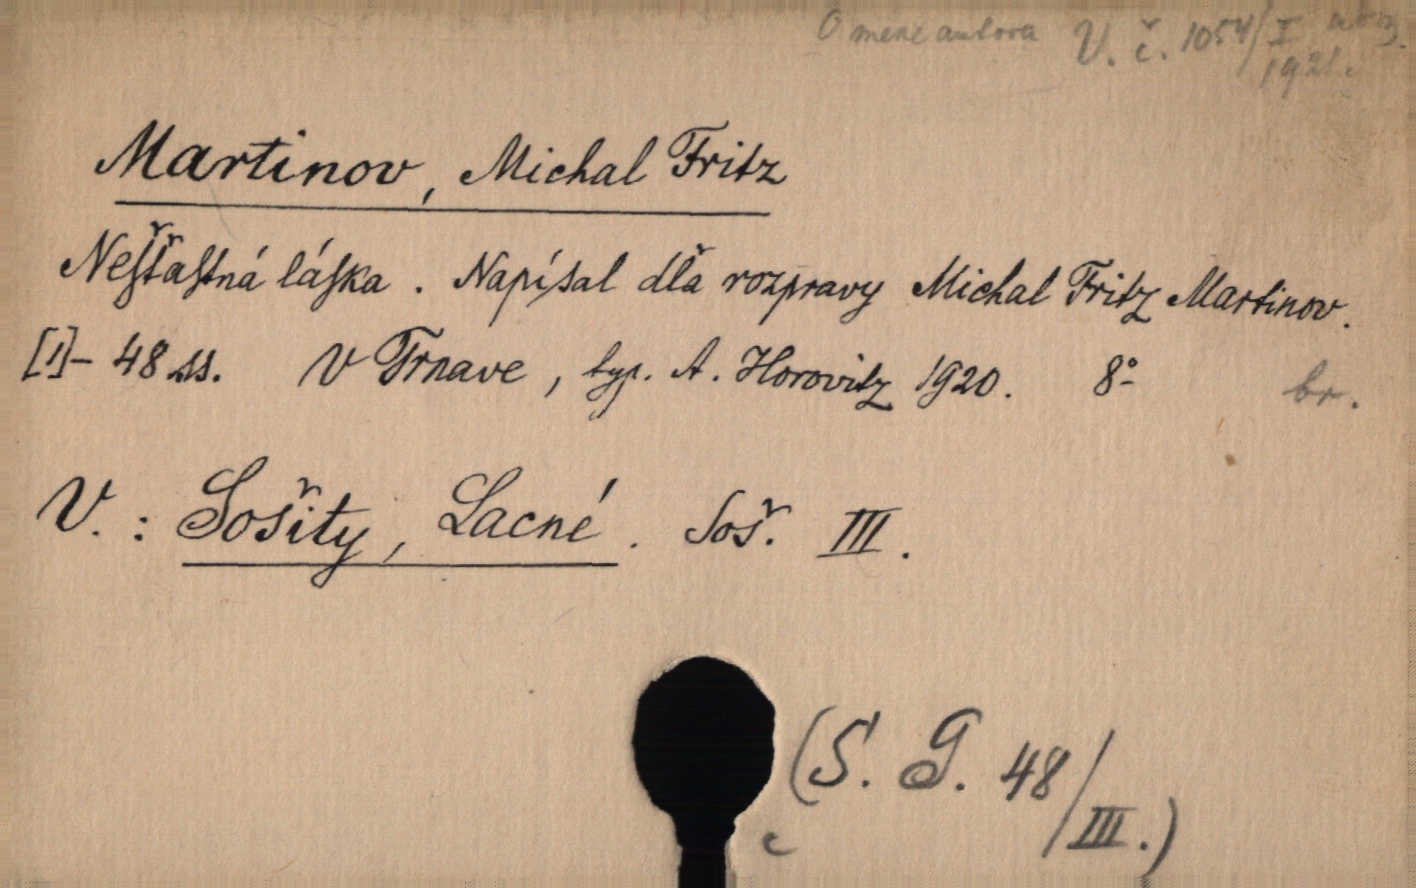 O mene autora V. č. 1054/I
1921.
Martinov, Michal Fritz
Nešťastná láska. Napísal dľa rozpravy Michal Fritz Martinov.
[1]- 48 ss. V Trnave, typ. A. Horovitz 1920. 8°- br.
V. : Sošity, Lacné. Soš. III.
(S. G. 48/III.)
c